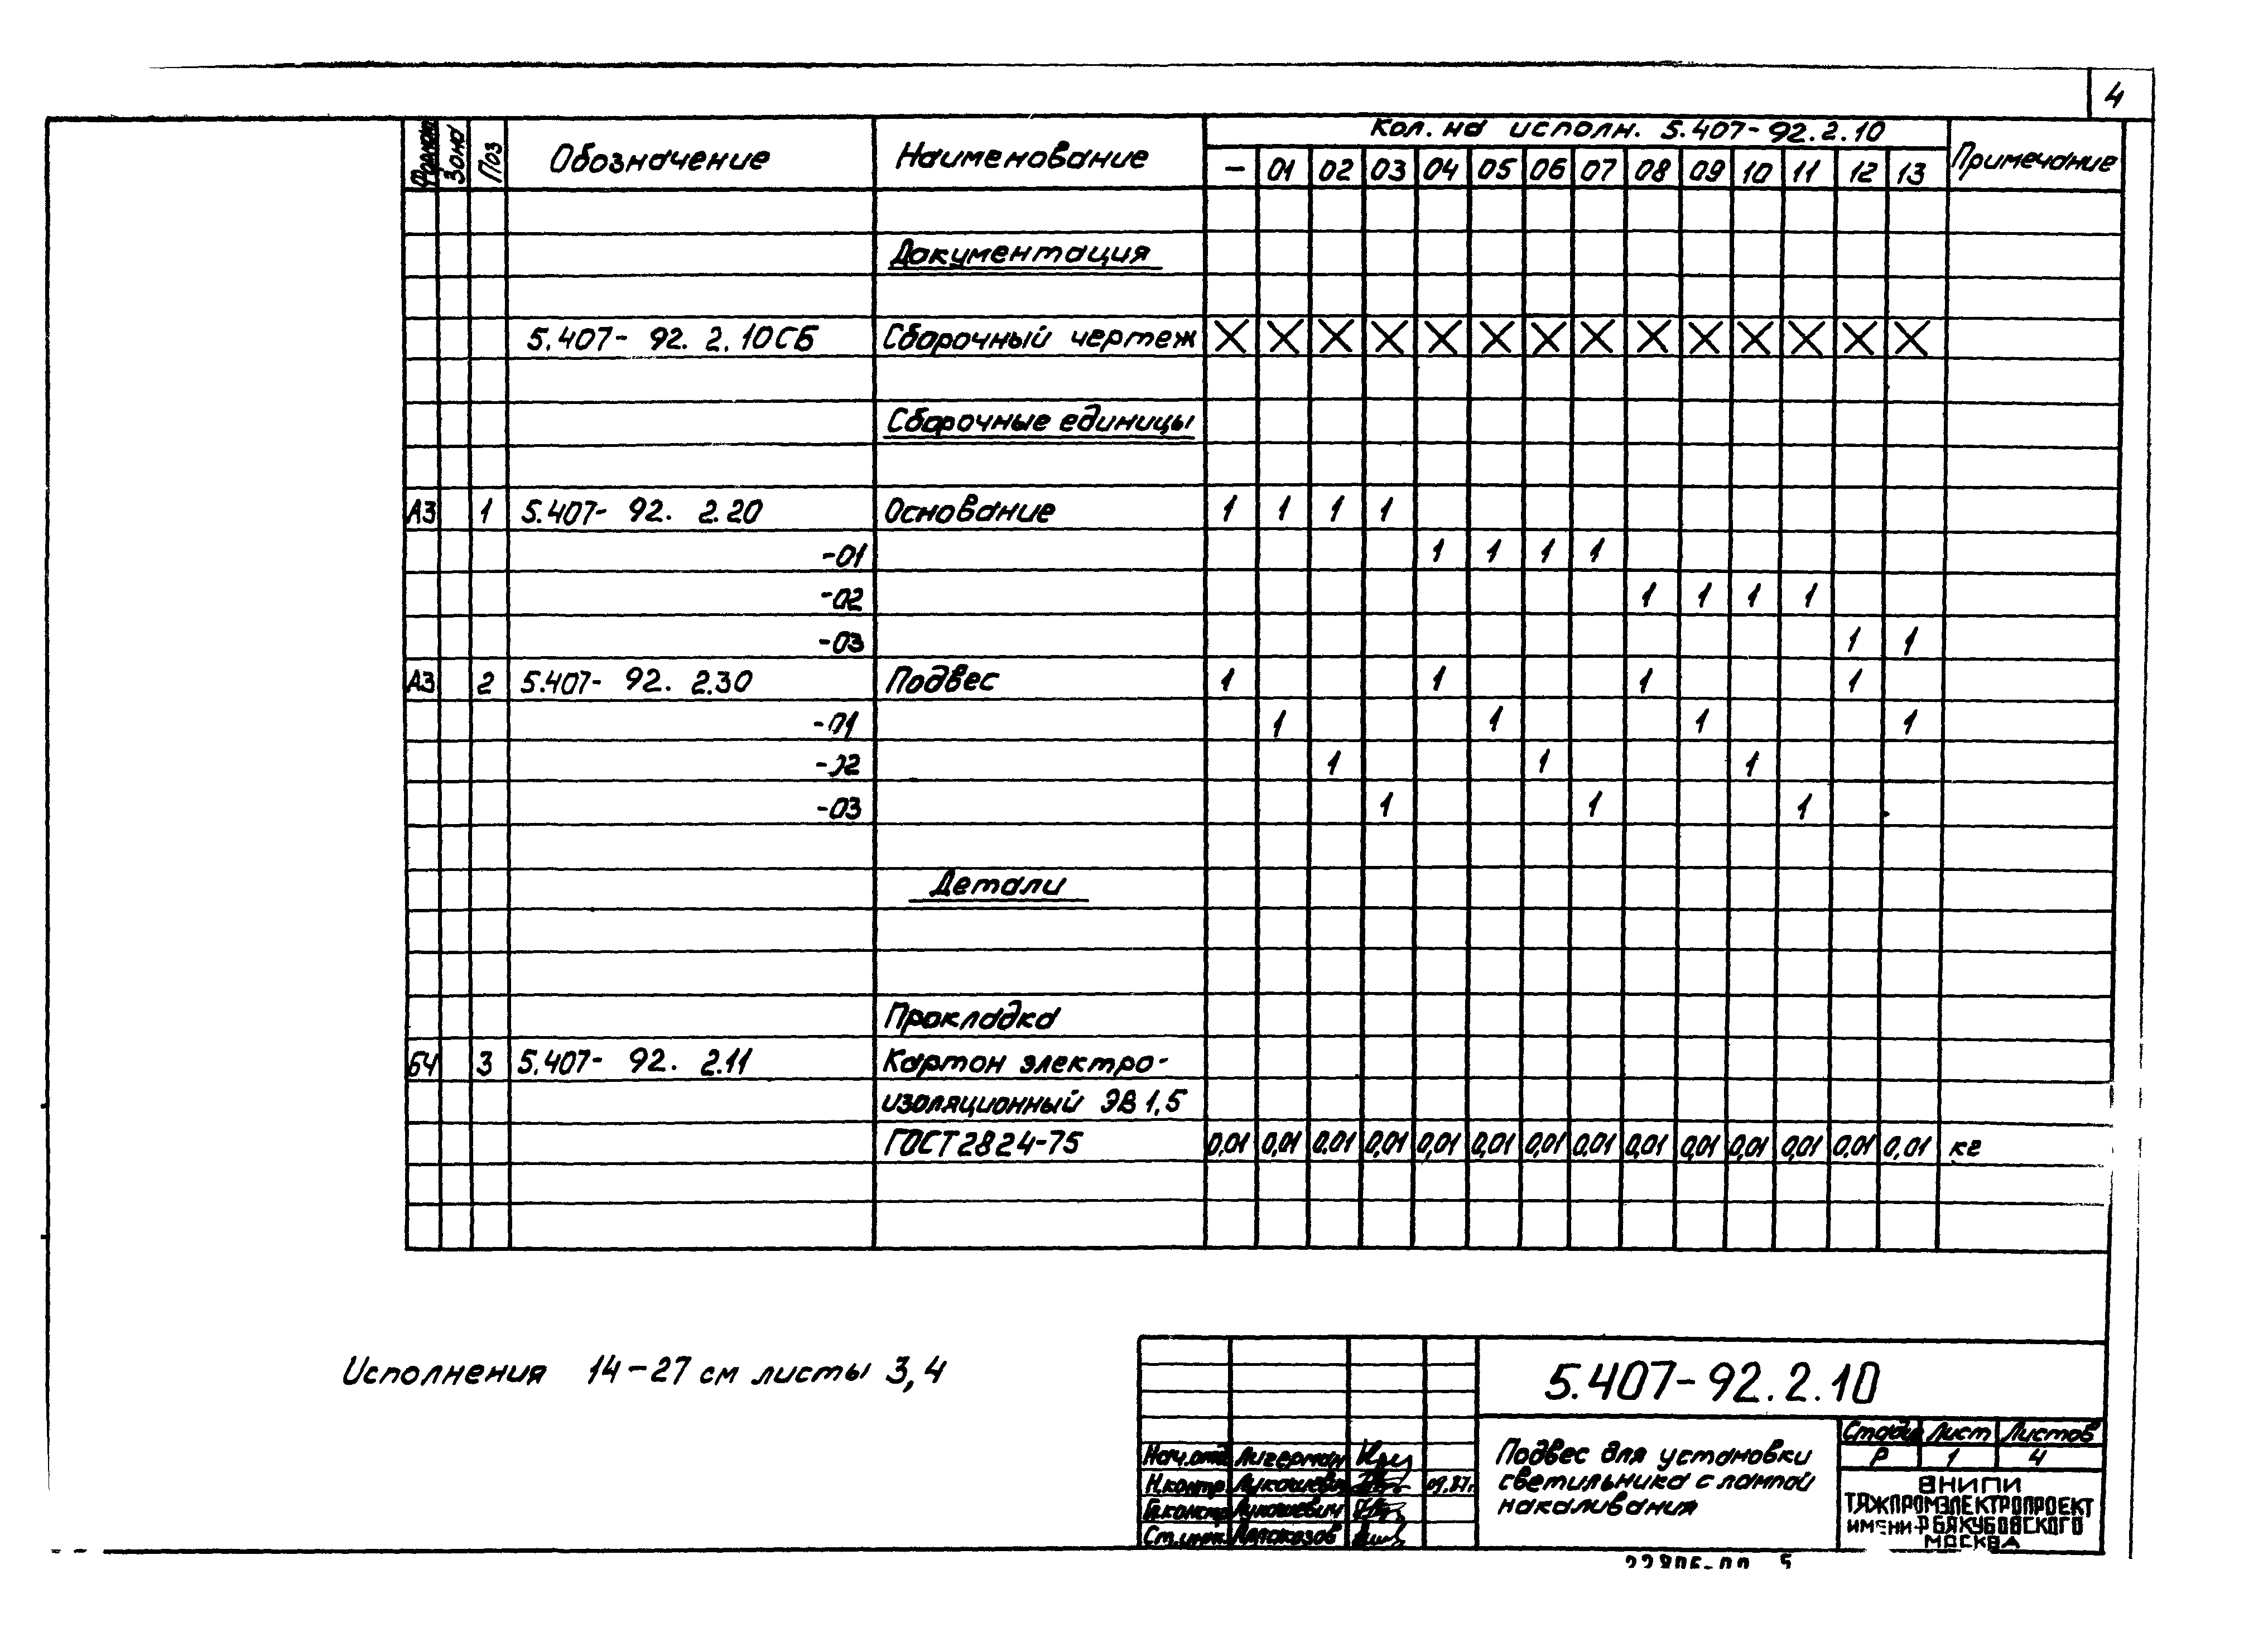 4
Формат Зона Поз Обозначение Наименование Кол. на исполн. 5.407-92.2.10 Примечание
– 01 02 03 04 05 06 07 08 09 10 11 12 13
Документация
5.407- 92. 2.10СБ Сборочный чертеж X X X X X X X X X X X X X X
Сборочные единицы
А3 1 5.407- 92. 2.20 Основание 1 1 1 1
-01 1 1 1 1
-02 1 1 1 1
-03 1 1
А3 2 5.407- 92. 2.30 Подвес 1 1 1 1
-01 1 1 1 1
-02 1 1 1
-03 1 1 1
Детали
Прокладка
БЧ 3 5.407- 92. 2.11 Картон электро-
изоляционный ЭВ 1,5
ГОСТ 2824-75 0,01 0,01 0,01 0,01 0,01 0,01 0,01 0,01 0,01 0,01 0,01 0,01 0,01 0,01 кг
Исполнения 14-27 см листы 3,4
5.407-92.2.10
Нач.отд.
Н.контр. Лукашевич 09.87г.
Гл.констр. Лукашевич
Ст.инж.
Подвес для установки
светильника с лампой
накаливания
Стадия Лист Листов
Р 1 4
ВНИПИ
ТЯЖПРОМЭЛЕКТРОПРОЕКТ
ИМЕНИ Ф.Б.ЯКУБОВСКОГО
МОСКВА